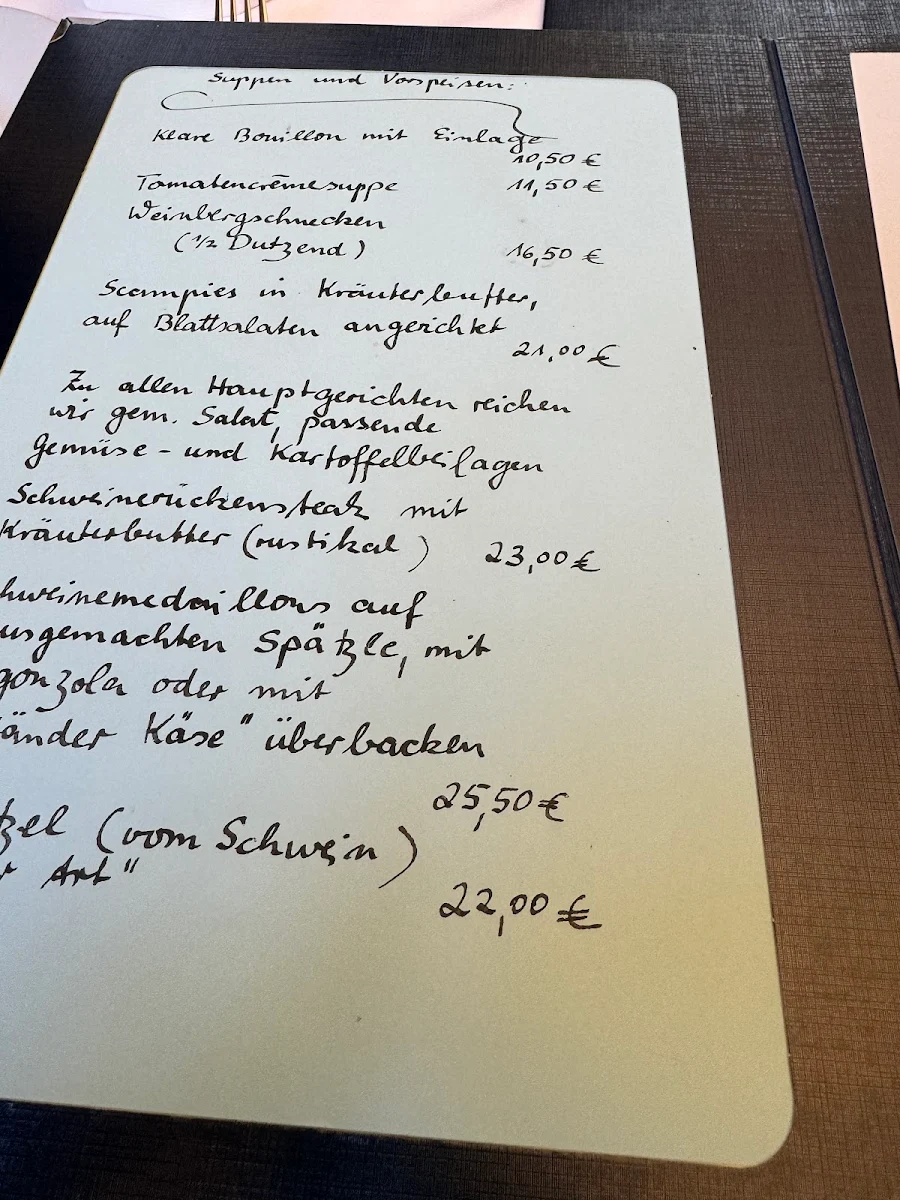 Suppen und Vorspeisen:
Klare Bouillon mit Einlage
10,50 €
Tomatencrèmesuppe 11,50 €
Weinbergschnecken
(1/2 Dutzend) 16,50 €
Scampies in Kräuterbutter,
auf Blattsalaten angerichtet
21,00 €
Zu allen Hauptgerichten reichen
wir gem. Salat, passende
Gemüse- und Kartoffelbeilagen
Schweinerückensteak mit
Kräuterbutter (rustikal) 23,00 €
hweinemedaillons auf
usgemachten Spätzle, mit
gonzola oder mit
änder Käse" überbacken
25,50 €
zel (vom Schwein)
r Art"
22,00 €